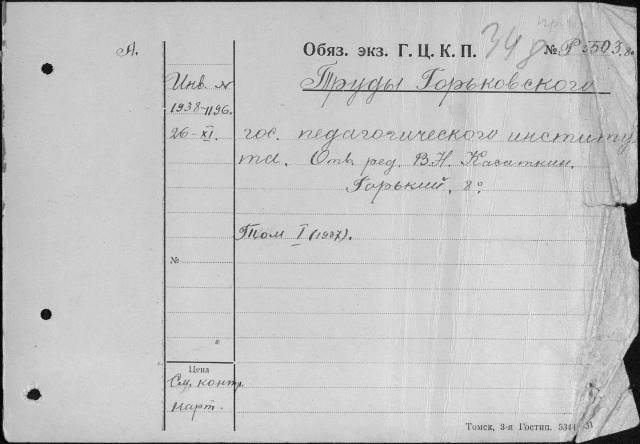 А.
Обяз. экз. Г. Ц. К. П.
34
№ Р 5503.8°
Инв. №
1938-1196.
26-XI.
Труды Горьковского
гос. педагогического институ
та. Отв. ред. В.Н. Касаткин.
Горький, 8°
Том I (1937).
№
Цена
См. контр.
карт.
Томск, 3-я Гостип. 5344 31